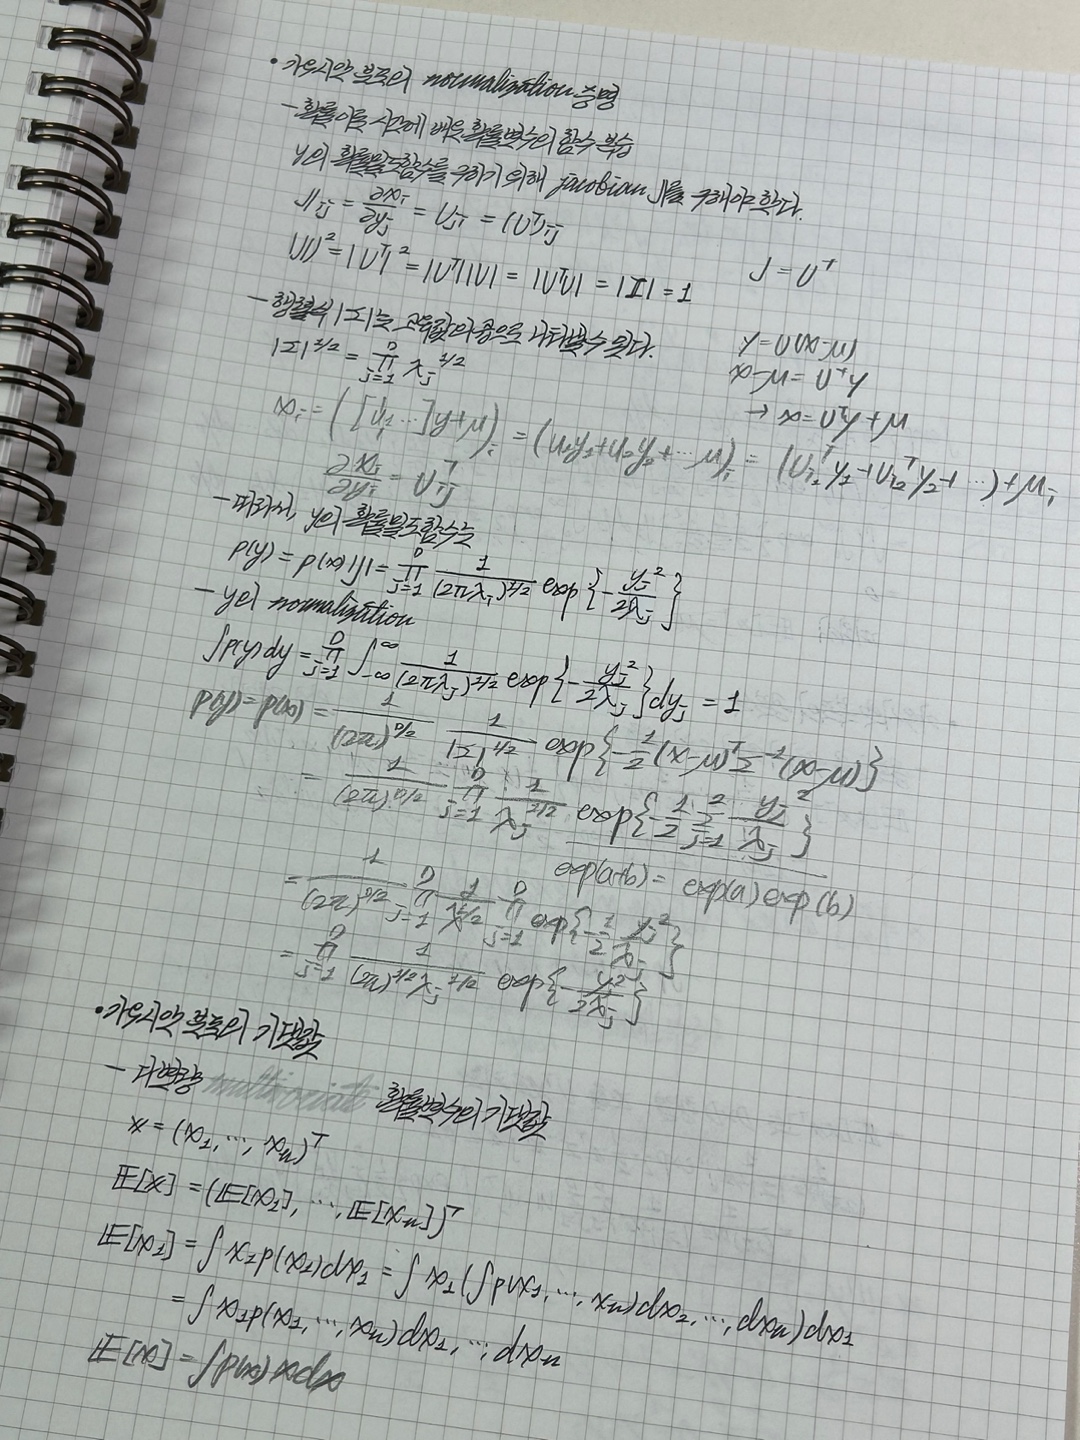 • 가우시안 분포의 normalization 증명
- 확률이론 시간에 배운 확률변수의 함수 복습
y의 확률밀도함수를 구하기 위해 jacobian J를 구해야 한다.
J_ij = ∂x_i/∂y_j = U_ji = (U^T)_ij
|J|^2 = |U^T|^2 = |U^T||U| = |U^T U| = |I| = 1
J = U^T
- 행렬식 |Σ|는 고유값의 곱으로 나타낼 수 있다.
|Σ|^1/2 = ∏_{j=1}^D λ_j^1/2
y = U(x-μ)
x-μ = U^T y
→ x = U^T y + μ
x_i = ([u_1 ...]y+μ)_i = (u_1y_1+u_2y_2+...μ)_i = (U_i1^T y_1 + U_i2^T y_2 + ...) + μ_i
∂x_i/∂y_j = U_ij^T
- 따라서, y의 확률밀도함수는
p(y) = p(x)|J| = ∏_{j=1}^D 1/(2πλ_j)^1/2 exp{-y_j^2/2λ_j}
- y의 normalization
∫p(y)dy = ∏_{j=1}^D ∫_{-∞}^{∞} 1/(2πλ_j)^1/2 exp{-y_j^2/2λ_j}dy_j = 1
p(y) = p(x) = 1/(2π)^D/2 1/|Σ|^1/2 exp{-1/2(x-μ)^T Σ^-1(x-μ)}
= 1/(2π)^D/2 ∏_{j=1}^D 1/λ_j^1/2 exp{-1/2 Σ_{j=1}^D y_j^2/λ_j}
exp(a+b) = exp(a)exp(b)
= 1/(2π)^D/2 ∏_{j=1}^D 1/λ^1/2 ∏_{j=1}^D exp{-1/2 y_j^2/λ_j}
= ∏_{j=1}^D 1/(2π)^1/2 λ_j^1/2 exp{-y_j^2/2λ_j}
• 가우시안 분포의 기댓값
- 다변량 multivariate 확률변수의 기댓값
x = (x_1, ..., x_n)^T
E[x] = (E[x_1], ..., E[x_n])^T
E[x_1] = ∫x_1p(x_1)dx_1 = ∫x_1(∫p(x_1, ..., x_n)dx_2, ..., dx_n)dx_1
= ∫x_1p(x_1, ..., x_n)dx_1, ..., dx_n
E[x] = ∫p(x)xdx